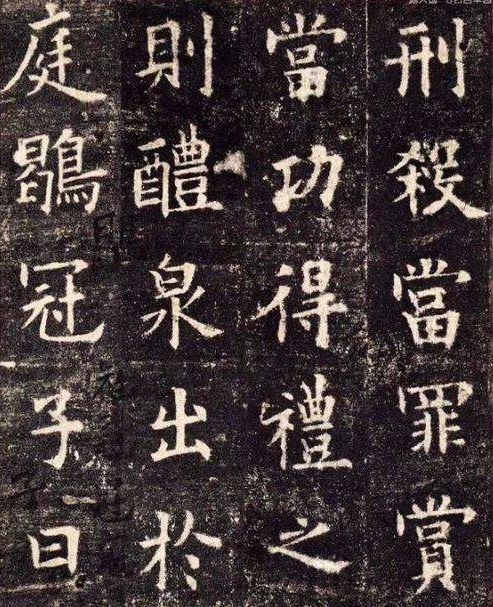 刑殺當罪賞
當功得禮之
則醴泉出於
庭鶡冠子曰